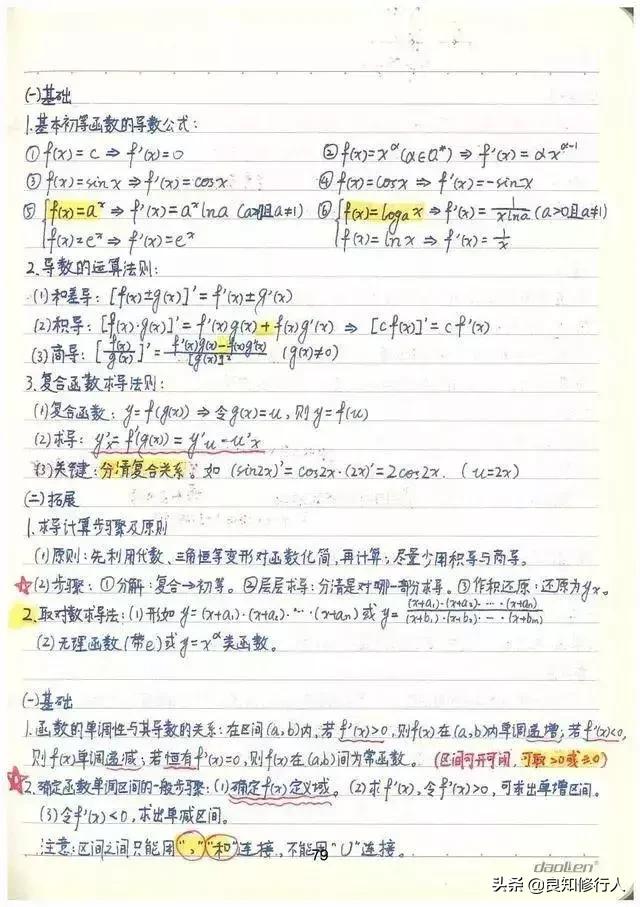 (一)基础
1.基本初等函数的导数公式:
① f(x)=c⇒f'(x)=0 ② f(x)=x^α(α∈Q*)⇒f'(x)=αx^(α-1)
③ f(x)=sinx⇒f'(x)=cosx ④ f(x)=cosx⇒f'(x)=-sinx
⑤ {f(x)=a^x⇒f'(x)=a^x lna (a>0且a≠1) ⑥ {f(x)=log_a x⇒f'(x)=1/(xlna) (a>0且a≠1)
f(x)=e^x⇒f'(x)=e^x f(x)=lnx⇒f'(x)=1/x
2.导数的运算法则:
(1)和差导:[f(x)±g(x)]'=f'(x)±g'(x)
(2)积导:[f(x)·g(x)]'=f'(x)g(x)+f(x)g'(x) ⇒ [cf(x)]'=cf'(x)
(3)商导:[f(x)/g(x)]'=(f'(x)g(x)-f(x)g'(x))/[g(x)]² (g(x)≠0)
3.复合函数求导法则:
(1)复合函数:y=f(g(x))⇒令g(x)=u,则y=f(u)
(2)求导:y'x=f'(g(x))=y'u-u'x
(3)关键:分清复合关系。如(sin2x)'=cos2x·(2x)'=2cos2x.(u=2x)
(二)拓展
1.求导计算步骤及原则
(1)原则:先利用代数、三角恒等变形对函数化简,再计算;尽量少用积导与商导。
☆(2)步骤:①分解:复合→初等。②层层求导:分清是对哪一部分求导。③作积还原:还原为yx。
2.取对数求导法:(1)形如y=(x+a₁)·(x+a₂)·…·(x+an)或y=((x+a₁)·(x+a₂)·…·(x+an))/((x+b₁)·(x+b₂)·…·(x+bm))
(2)无理函数(带e)或y=x^α类函数。
(一)基础
1.函数的单调性与其导数的关系:在区间(a,b)内,若f'(x)>0,则f(x)在(a,b)内单调递增;若f'(x)<0,
则f(x)单调递减;若恒有f'(x)=0,则f(x)在(a,b)间为常函数。(区间可开可闭,可取>0或≥0)
☆2.确定函数单调区间的一般步骤:(1)确定f(x)定义域。(2)求f'(x),令f'(x)>0,可求出单增区间。
(3)令f'(x)<0,求出单减区间。
注意:区间之间只能用“,”“和”连接,不能用“∪”连接。
79
daolien®
头条 @良知修行人